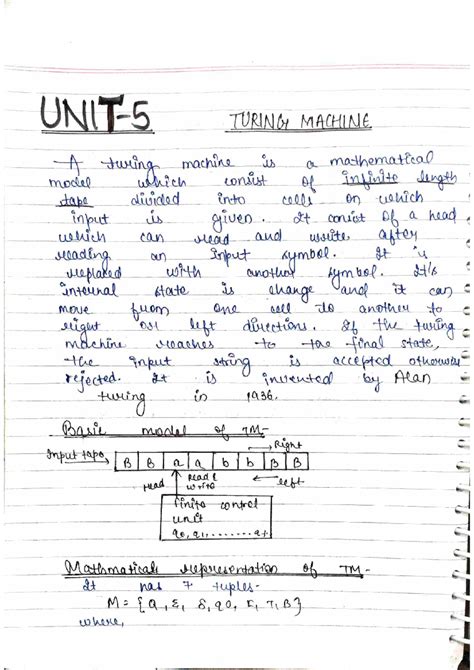 UNIT-5
TURING MACHINE
A turing machine is a mathematical
model which consist of infinite length
tape divided into cells on which
input is given. It conist of a head
which can read and write after
reading an input symbol. It is
replaced with another symbol. It's
internal state is change and it can
move from one cell to another to
right or left directions. If the turing
machine reaches to the final state,
the input string is accepted otherwise
rejected. It is invented by Alan
turing in 1936.
Basic model of TM-
Right
Input tape B B a a b b B B
Head Read & write left
finite control
unit
q0, q1, ........ qf
Mathmatical representation of TM-
It has 7 tuples-
M = {Q, Σ, δ, q0, F, T, B}
where,